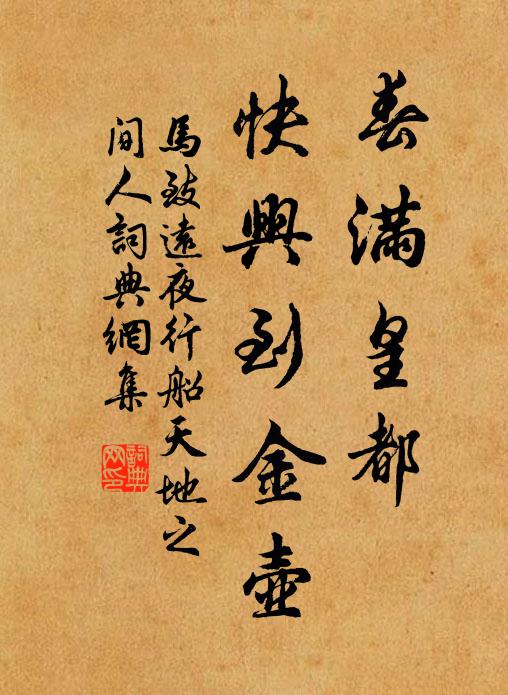 春滿皇都
快興到金壺
馬致遠夜行船天地之
間人詞典網集
詞典
网印